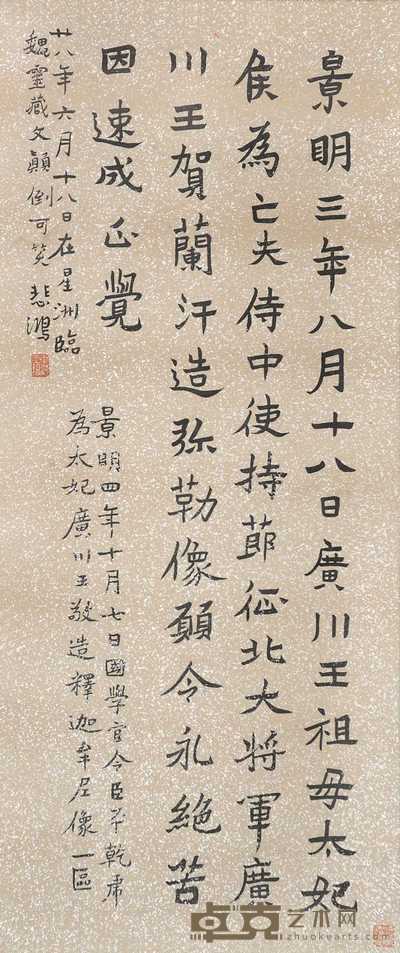 景明三年八月十八日廣川王祖母太妃
侯為亡夫侍中使持節征北大將軍廣
川王賀蘭汗造弥勒像願令永絕苦
因速成正覺
廿八年六月十八日在星洲臨
魏靈藏文顛倒可笑 悲鴻
景明四年十月七日國學官令臣平乾虎
為太妃廣川王敬造釋迦牟尼像一區
卓克艺术网
zhuokearts.com